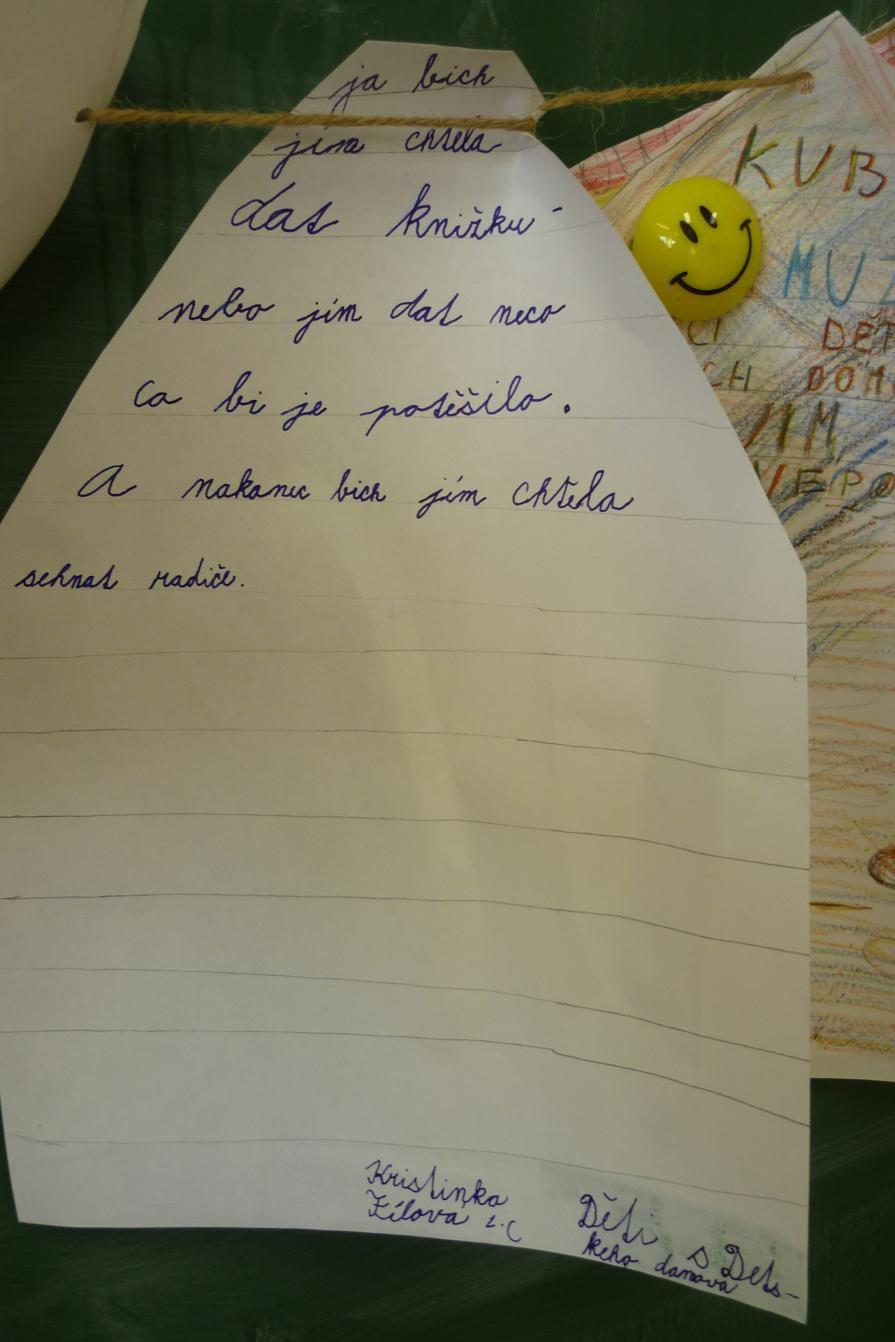 ja bich
jim chtěla
dat knižku
nebo jím dat neco
co bi je potěšilo.
A nakonec bich jím chtěla
sehnat rodiče.
Kristinka
Zílova 2.C
Děti s Dets-
keho domova
KUB
MUZ
DĚT
CH DOM
JIM